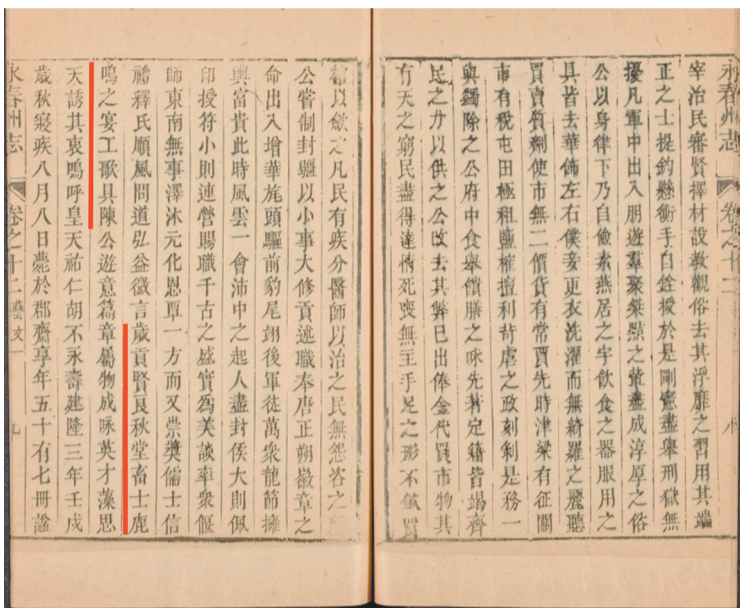 永春州志 卷之十二
宰治民審賢擇材設教觀俗去其浮靡之習用其端
正之士提鈞懸衡手自銓授於是剛憲盡舉刑獄無
擾凡軍中出入朋遊羣聚桀黠之輩盡成淳厚之俗
公以身律下乃自儉素燕居之宇飲食之器服用之
具皆去華飾左右僕妾更衣洗濯而無綺羅之麗聽
買賣質劑使市無二價貨有常賈先時津梁有征關
市有稅屯田極租鹽榷擅利苛虐之政刻剝是務一
與蠲除之公府中食舉饋膳之味先著定籍皆竭齊
民之力以供之公改去其弊已出俸金代買市物其
有天之窮民盡得達情死喪無主手足之形不斂買
以斂之凡民有疾分醫師以治之民無怨咨之
公嘗制封疆以小事大修貢述職奉唐正朔徽章之
命出入增華旄頭驅前豹尾翊後軍徒萬衆龍節擁
輿富貴此時風雲一會沛中之起人盡封侯大則佩
印授符小則連營賜職千古之盛實爲美談率衆偃
師東南無事澤沐元化恩覃一方而又崇獎儒士信
禮釋氏順風問道弘益微言歲貢賢良秋堂畜士鹿
鳴之宴工歌具陳公遊意篇章屬物成咏英才藻思
天誘其衷嗚呼皇天祐仁胡不永壽建隆三年壬戌
歲秋寢疾八月八日薨於郡齋享年五十有七冊諡
永春州志 卷之十二 藝文一 九